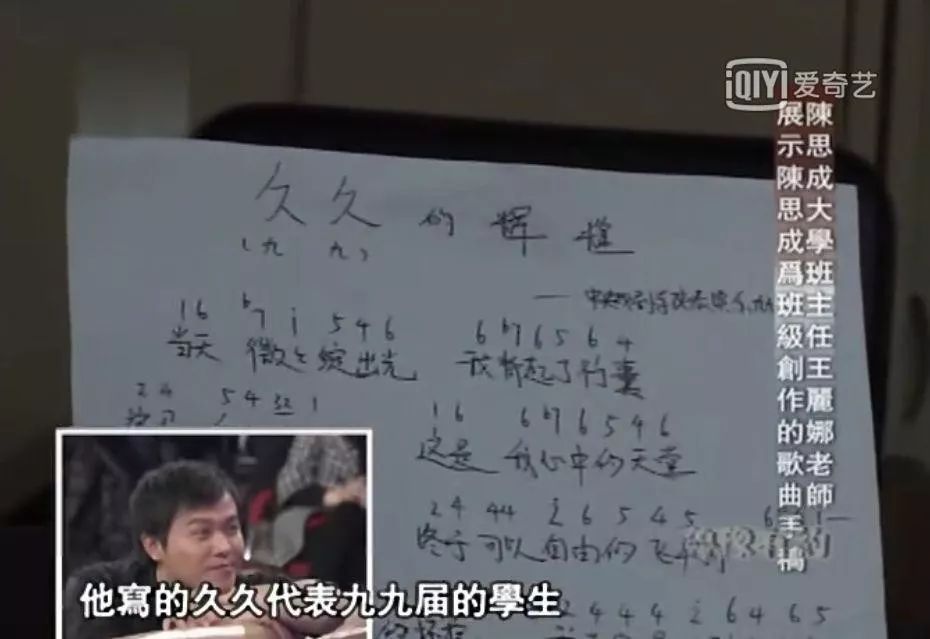 iQIYI 爱奇艺
陳思成大學班主任王麗娜老師
展示陳思成爲班級創作的歌曲手稿
久久的辉煌
(九 九)
1 6 7 i 5 4 6
当天 微之绽出光
6 b7 6 5 6 4
我背起了行囊
2 4 5 4 32 1
1 6 6 b7 6 5 4 6
这是 我心中的天堂
2 4 44 2 6 5 4 5
终于可以自由的飞
2 4 4 4 2 6 4 6 5
他寫的久久代表九九届的學生